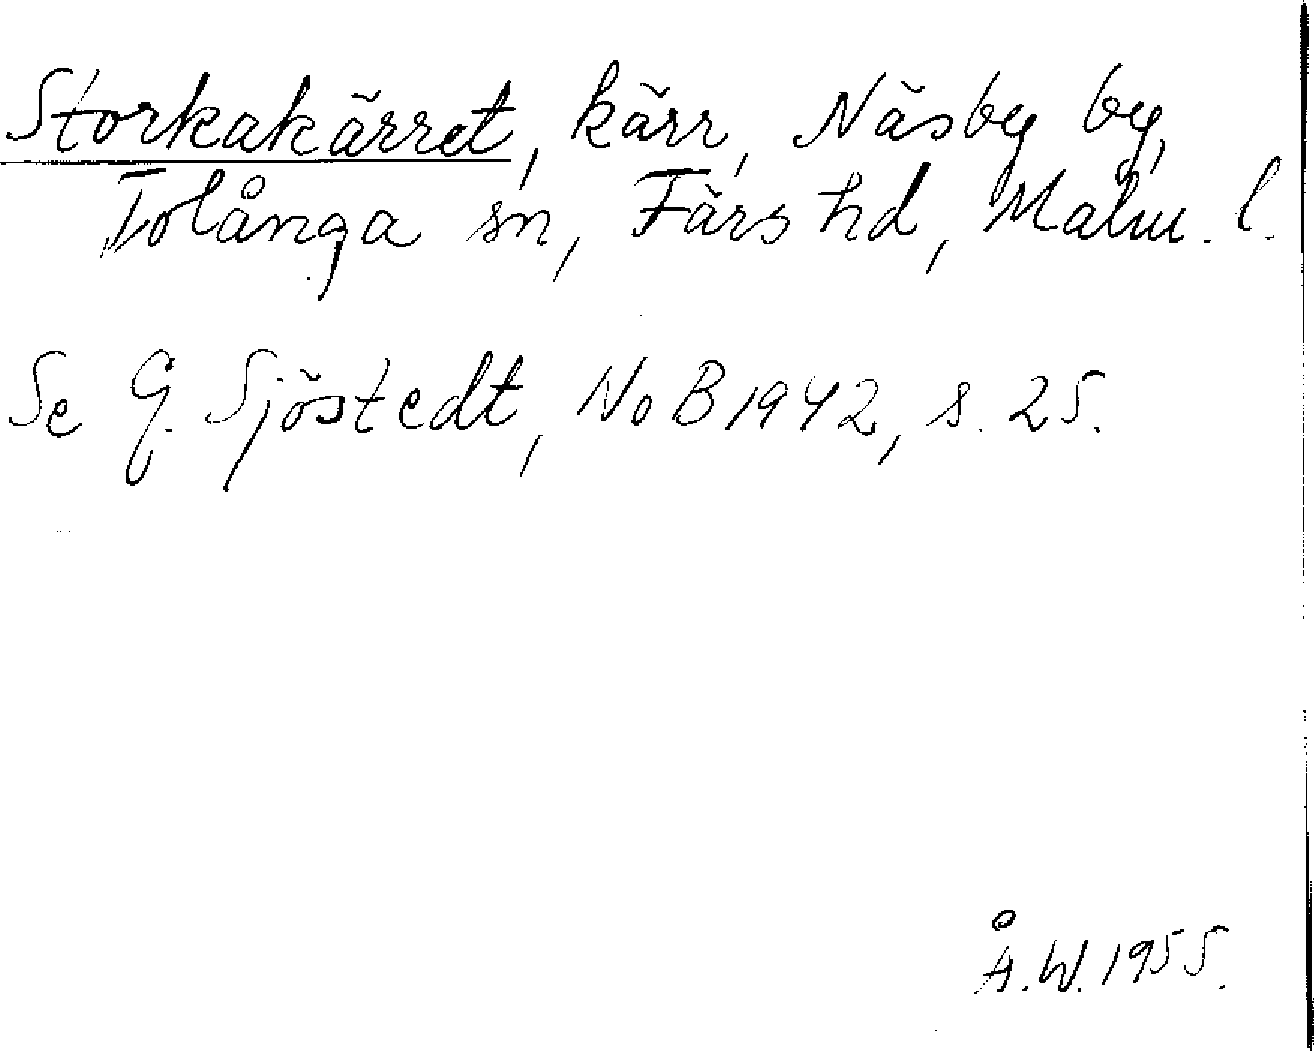 Storkakärret, kärr, Näsby by,
Tolånga sn, Färs hd, Malm. l.
Se G. Sjöstedt, NoB 1942, s. 25.
Å.W. 1955.